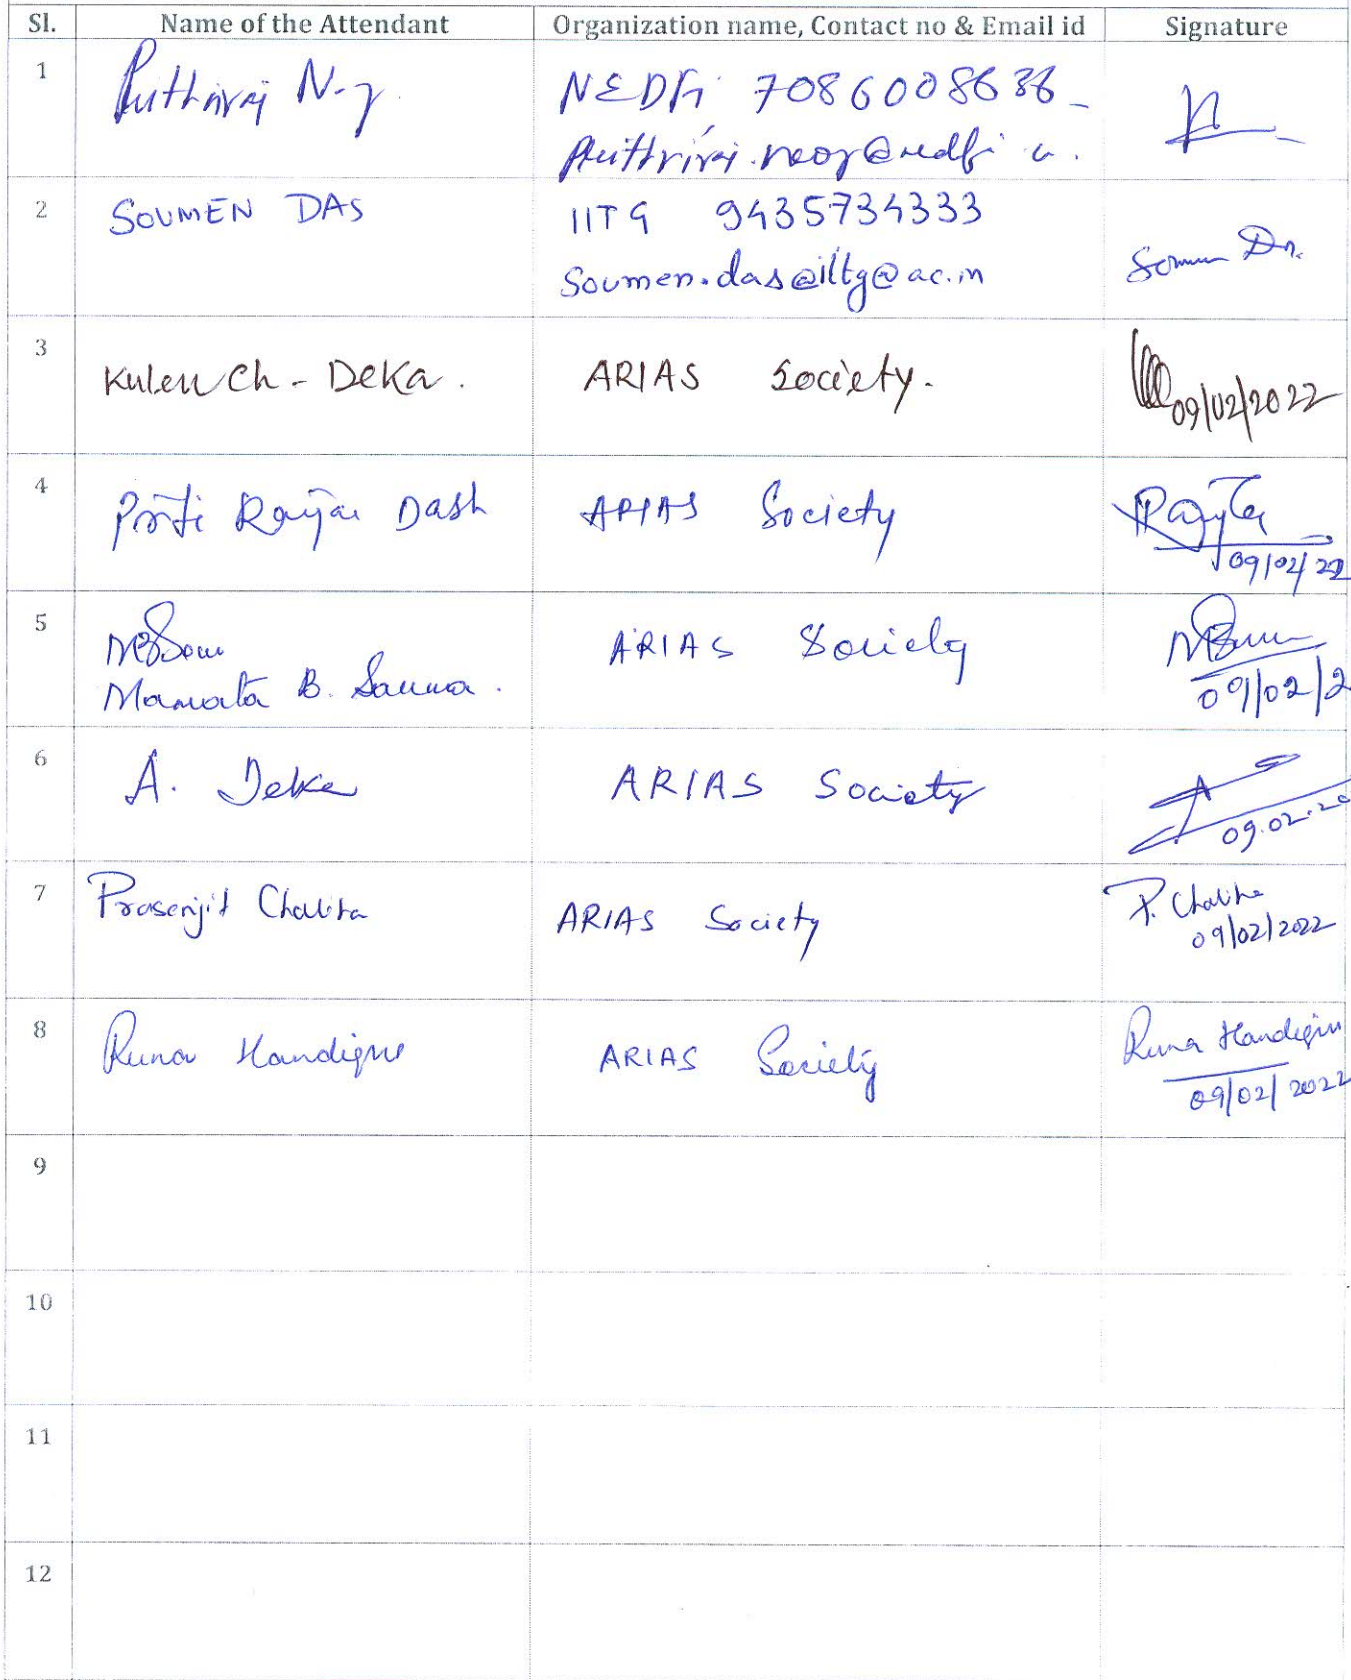 Sl. Name of the Attendant Organization name, Contact no & Email id Signature
1 NEDFi 7086008636
2 SOUMEN DAS IITG 9435734333
Soumen.das@iitg@ac.in
Soumen Das
3 Kulen Ch - Deka. ARIAS Society.
09/02/2022
4 Ranjan Dash ARIAS Society
09/02/22
5 ARIAS Society
Mamata B. Sarma.
09/02/2
6 A. Deka ARIAS Society
09.02.20
7 Prasenjit Chaliha ARIAS Society P. Chaliha
09/02/2022
8 Runa Handique ARIAS Society Runa Handique
09/02/2022
9
10
11
12